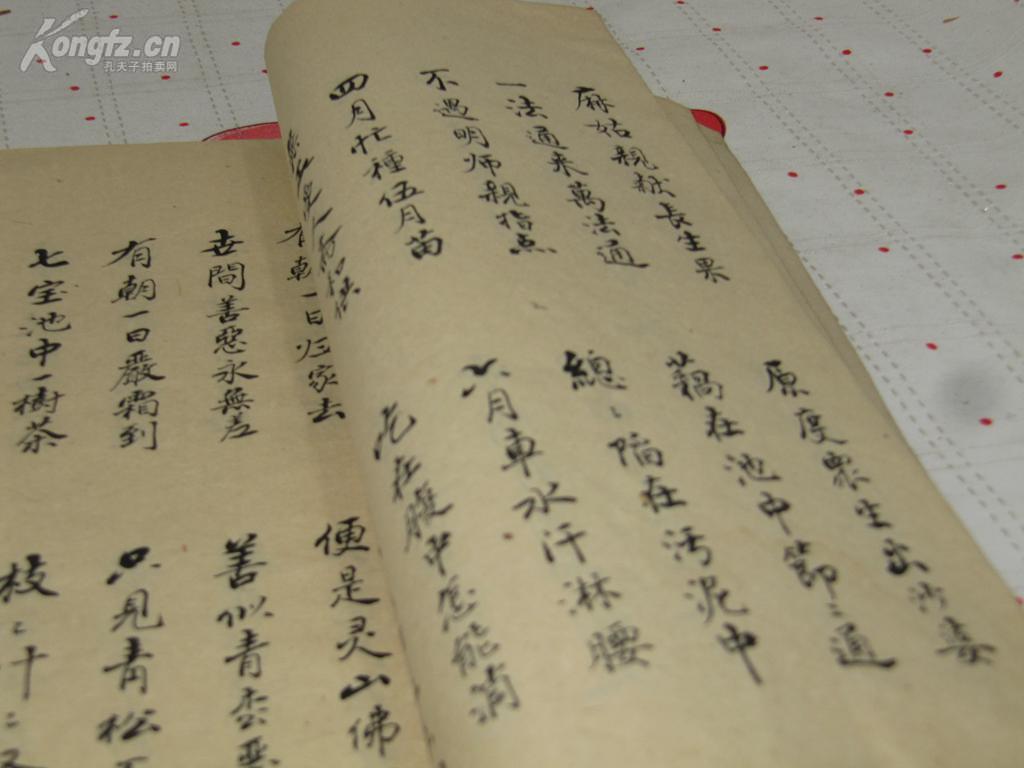 Kongfz.cn
孔夫子拍卖网
麻姑親献長生果
原度衆生出沙婆
一法通来萬法通
藕在池中節〻通
不遇明师親指点
總〻陷在污泥中
四月忙種伍月苗
六月車水汗淋腰
在腹中怎能消
有朝一日归家去
便是灵山佛
世間善惡永無差
善似青松惡
有朝一日嚴霜到
只見青松
七宝池中一樹茶
枝〻叶〻